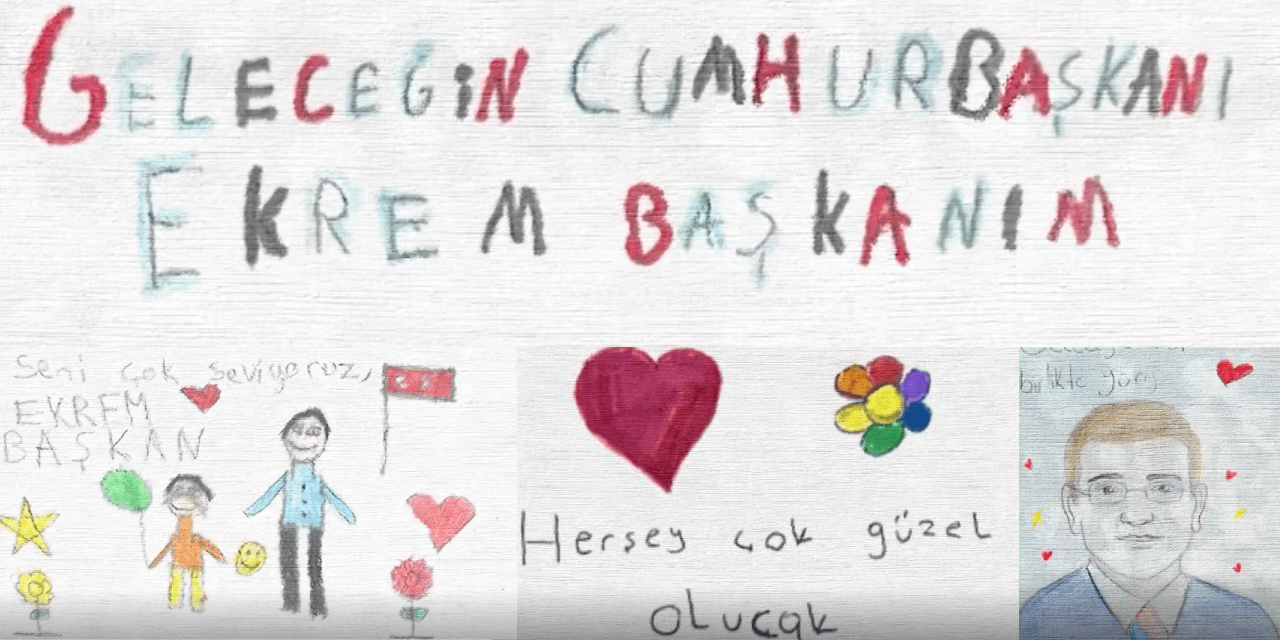 GELECEĞİN CUMHURBAŞKANI
EKREM BAŞKANIM
Seni çok seviyoruz,
EKREM
BAŞKAN
Hersey çok güzel
olucak
birlikte